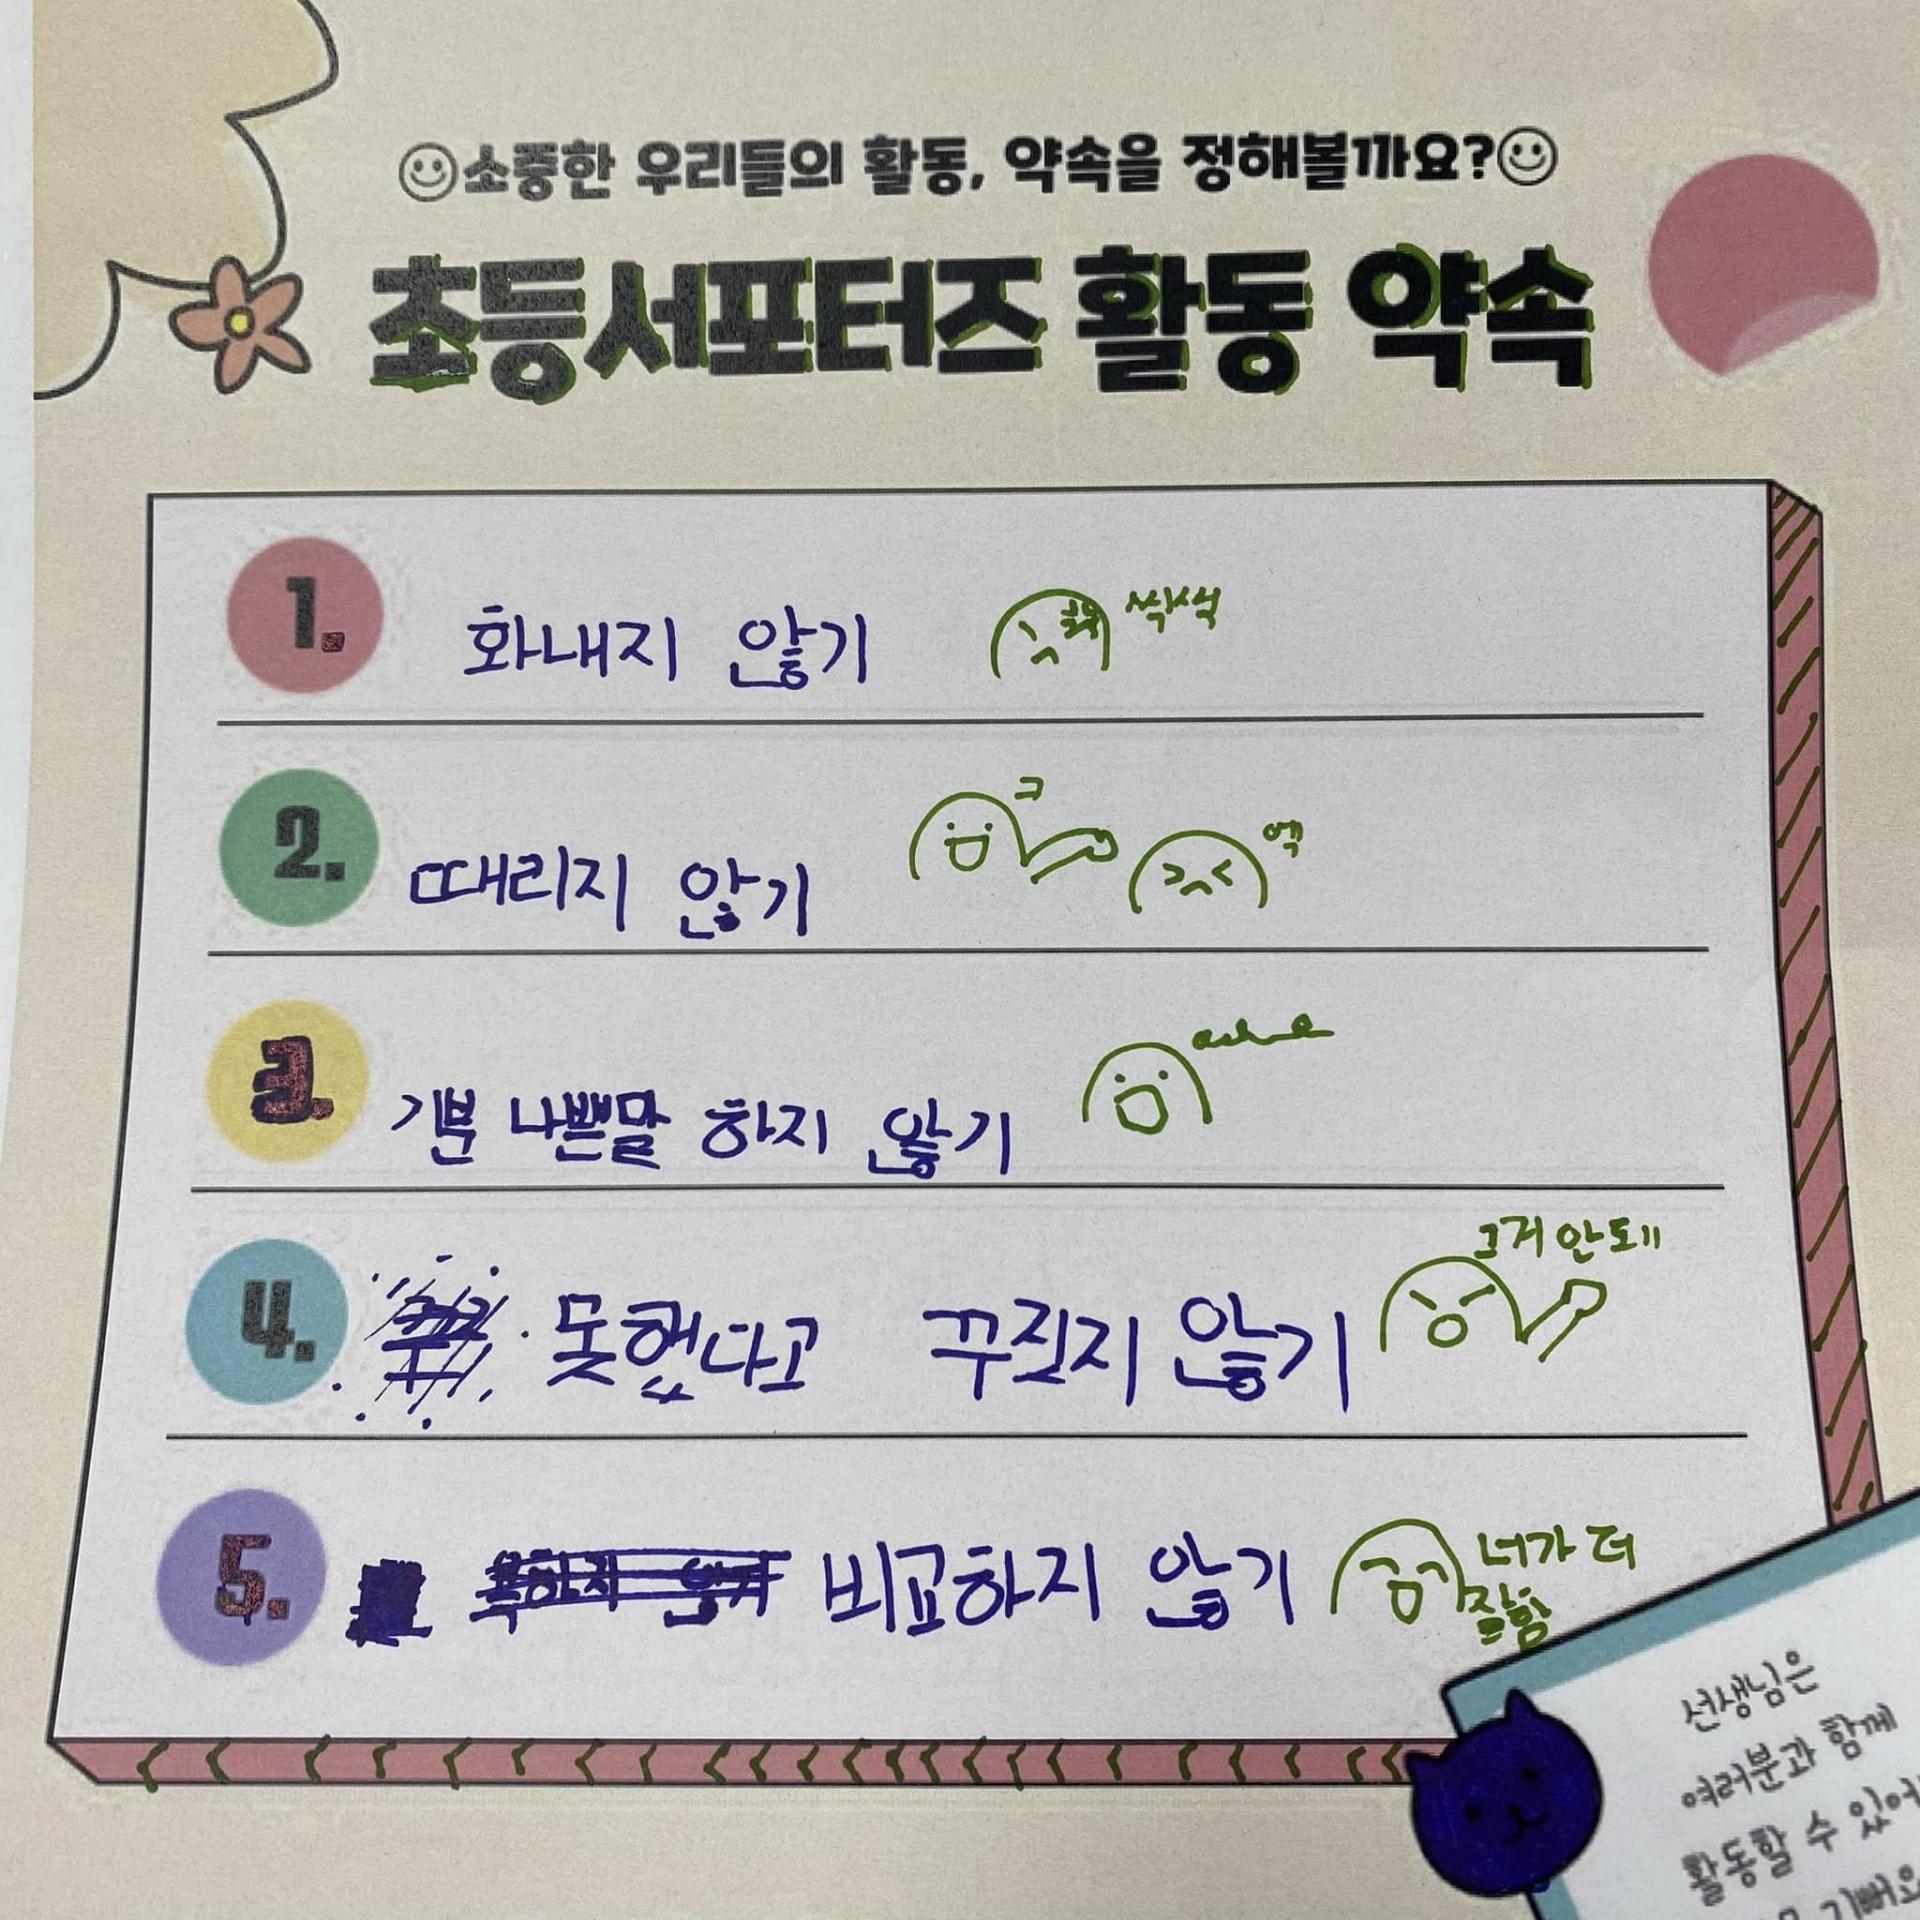 소중한 우리들의 활동, 약속을 정해볼까요?
초등서포터즈 활동 약속
1. 화내지 않기 씩씩
2. 때리지 않기 엑
3. 기분 나쁜말 하지 않기
4. 못했다고 꾸짖지 않기 그거 안돼
5. 비교하지 않기 너가 더
잘함
선생님은
여러분과 함께
활동할 수 있어
기뻐요